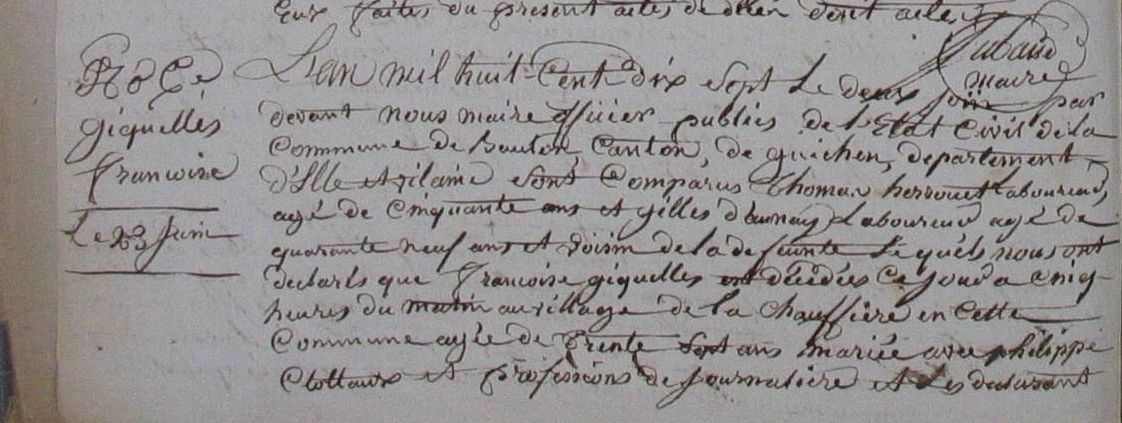 Eux faites du present actes de deien dont acte
Gibaud
maire
N° 6e
giquelles
francoise
Le 23 Juin
L'an mil huit Cent dix sept Le deux Juin par
devant nous maire officier publies de l'Etat Civil de la
Commune de Baulon, Canton, de guichen, departement
d'Ille et vilaine sont Comparus Thomas herrouet laboureur,
agé de Cinquante ans et gilles d'aunay Laboureur agé de
quarante neuf ans et voisin de la defuinte Lequels nous ont
declarés que francoise giquelles est décédées Ce jour a Cinq
heures du matin au village de la Chauffière en Cette
Commune agée de trente sept ans mariée avec philippe
Clottaux et professions de journalière et Les declarant